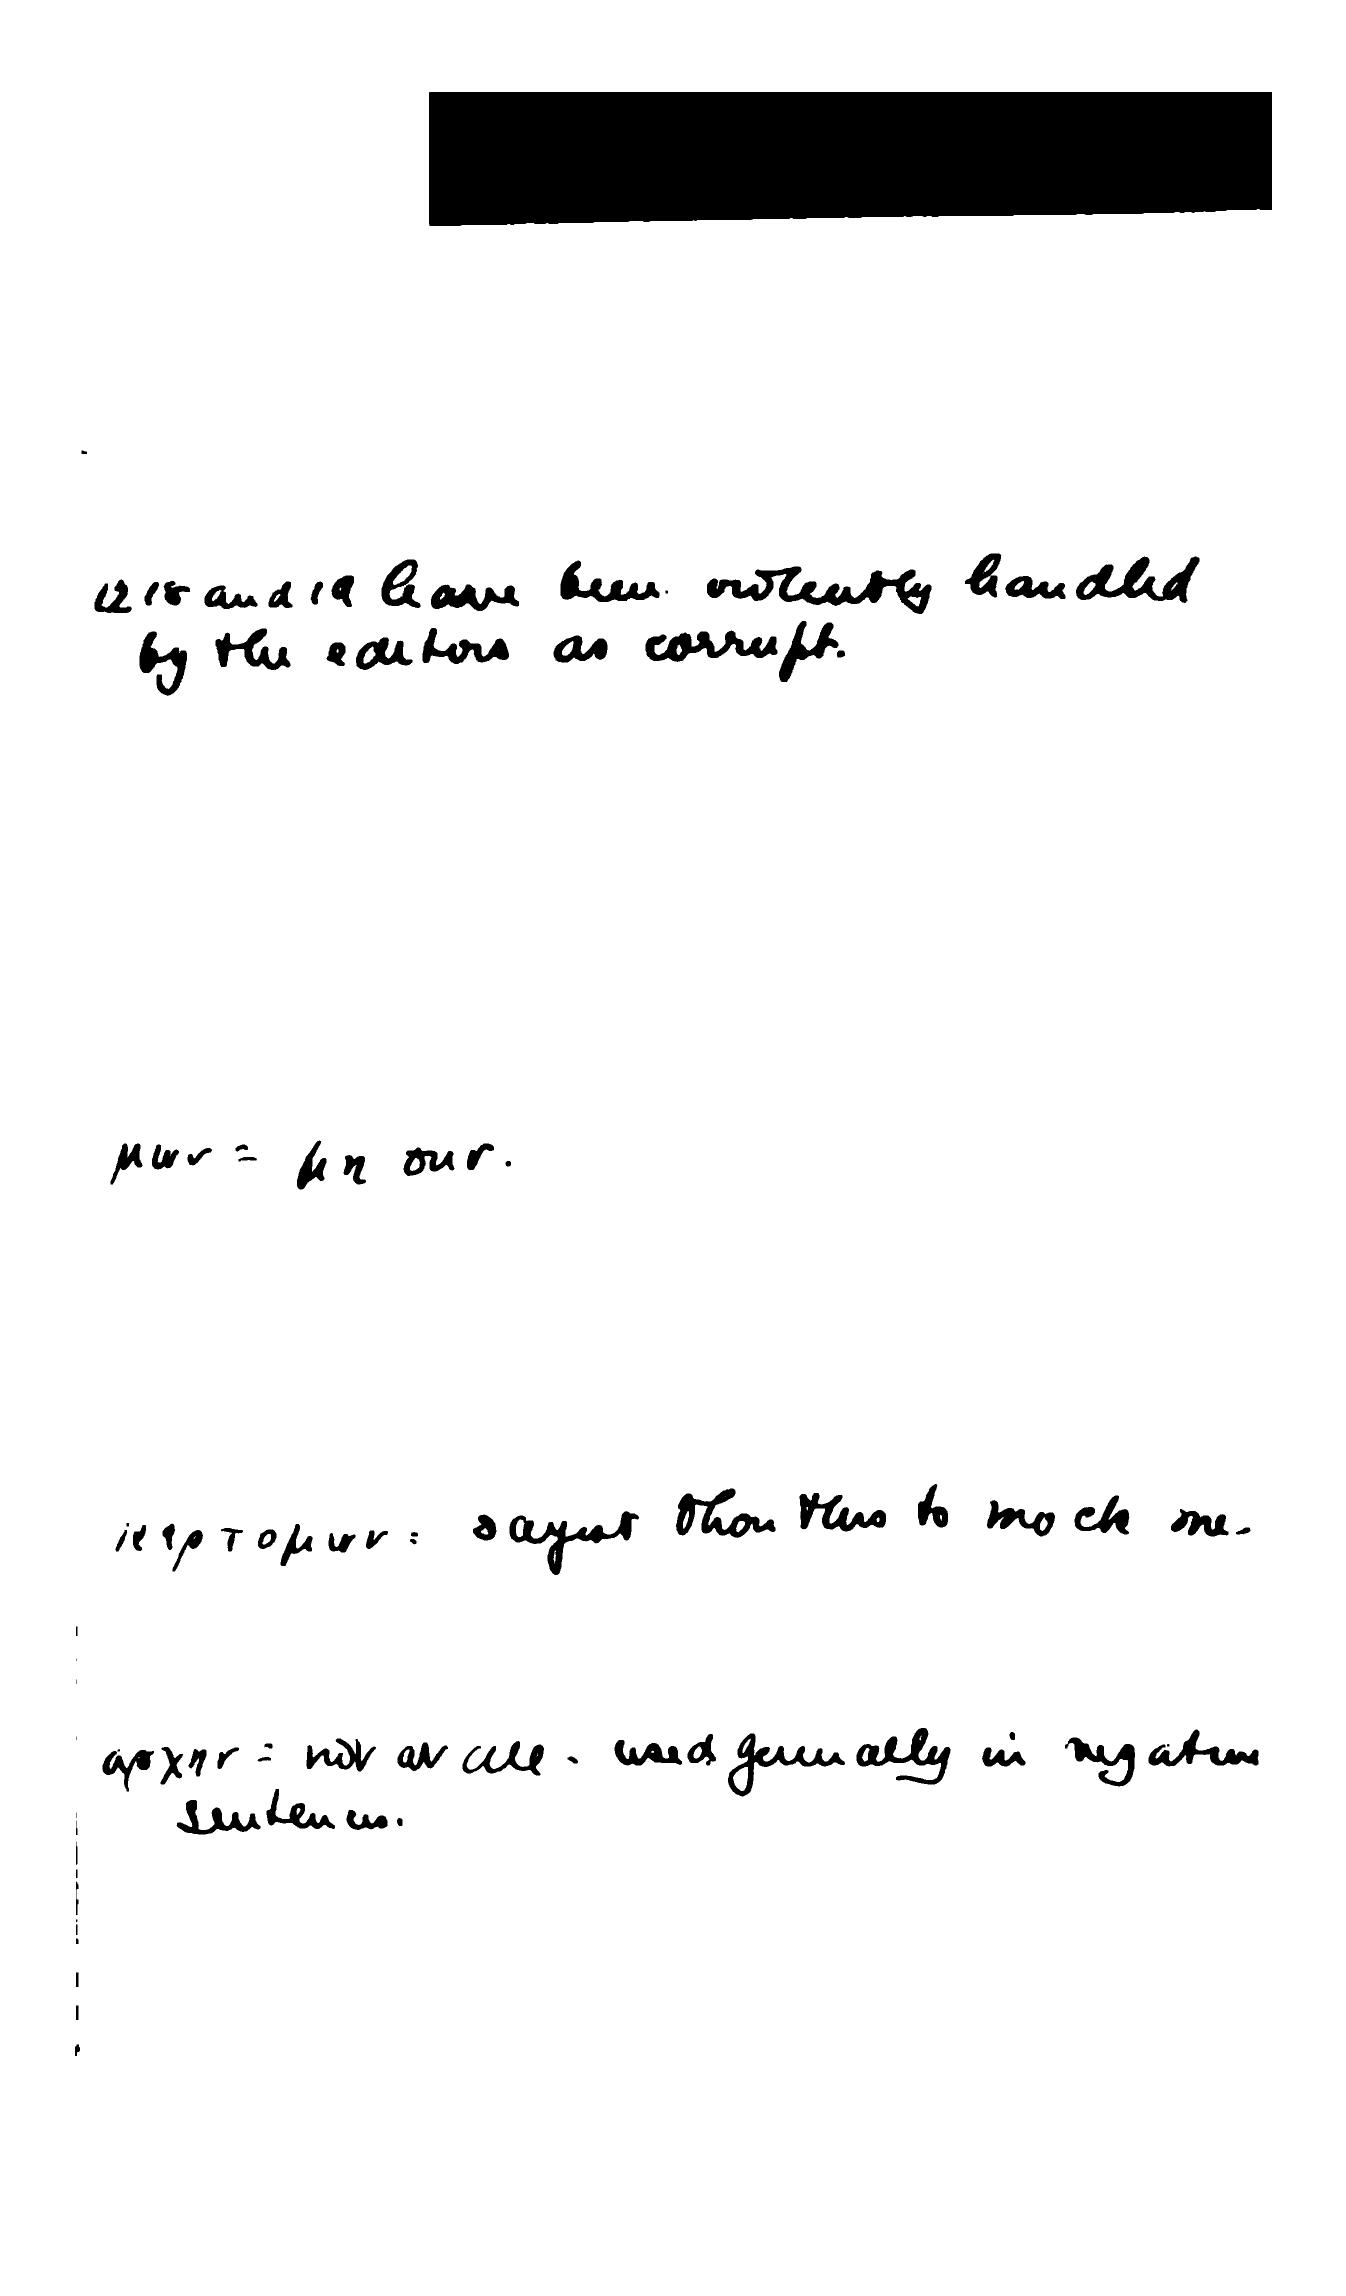 1218 and 19 have been violently handled
by the editors as corrupt.
μων = μη ουν.
κερτομων: sayest thou this to mock me.
αρχην = not at all. used generally in negative
sentences.